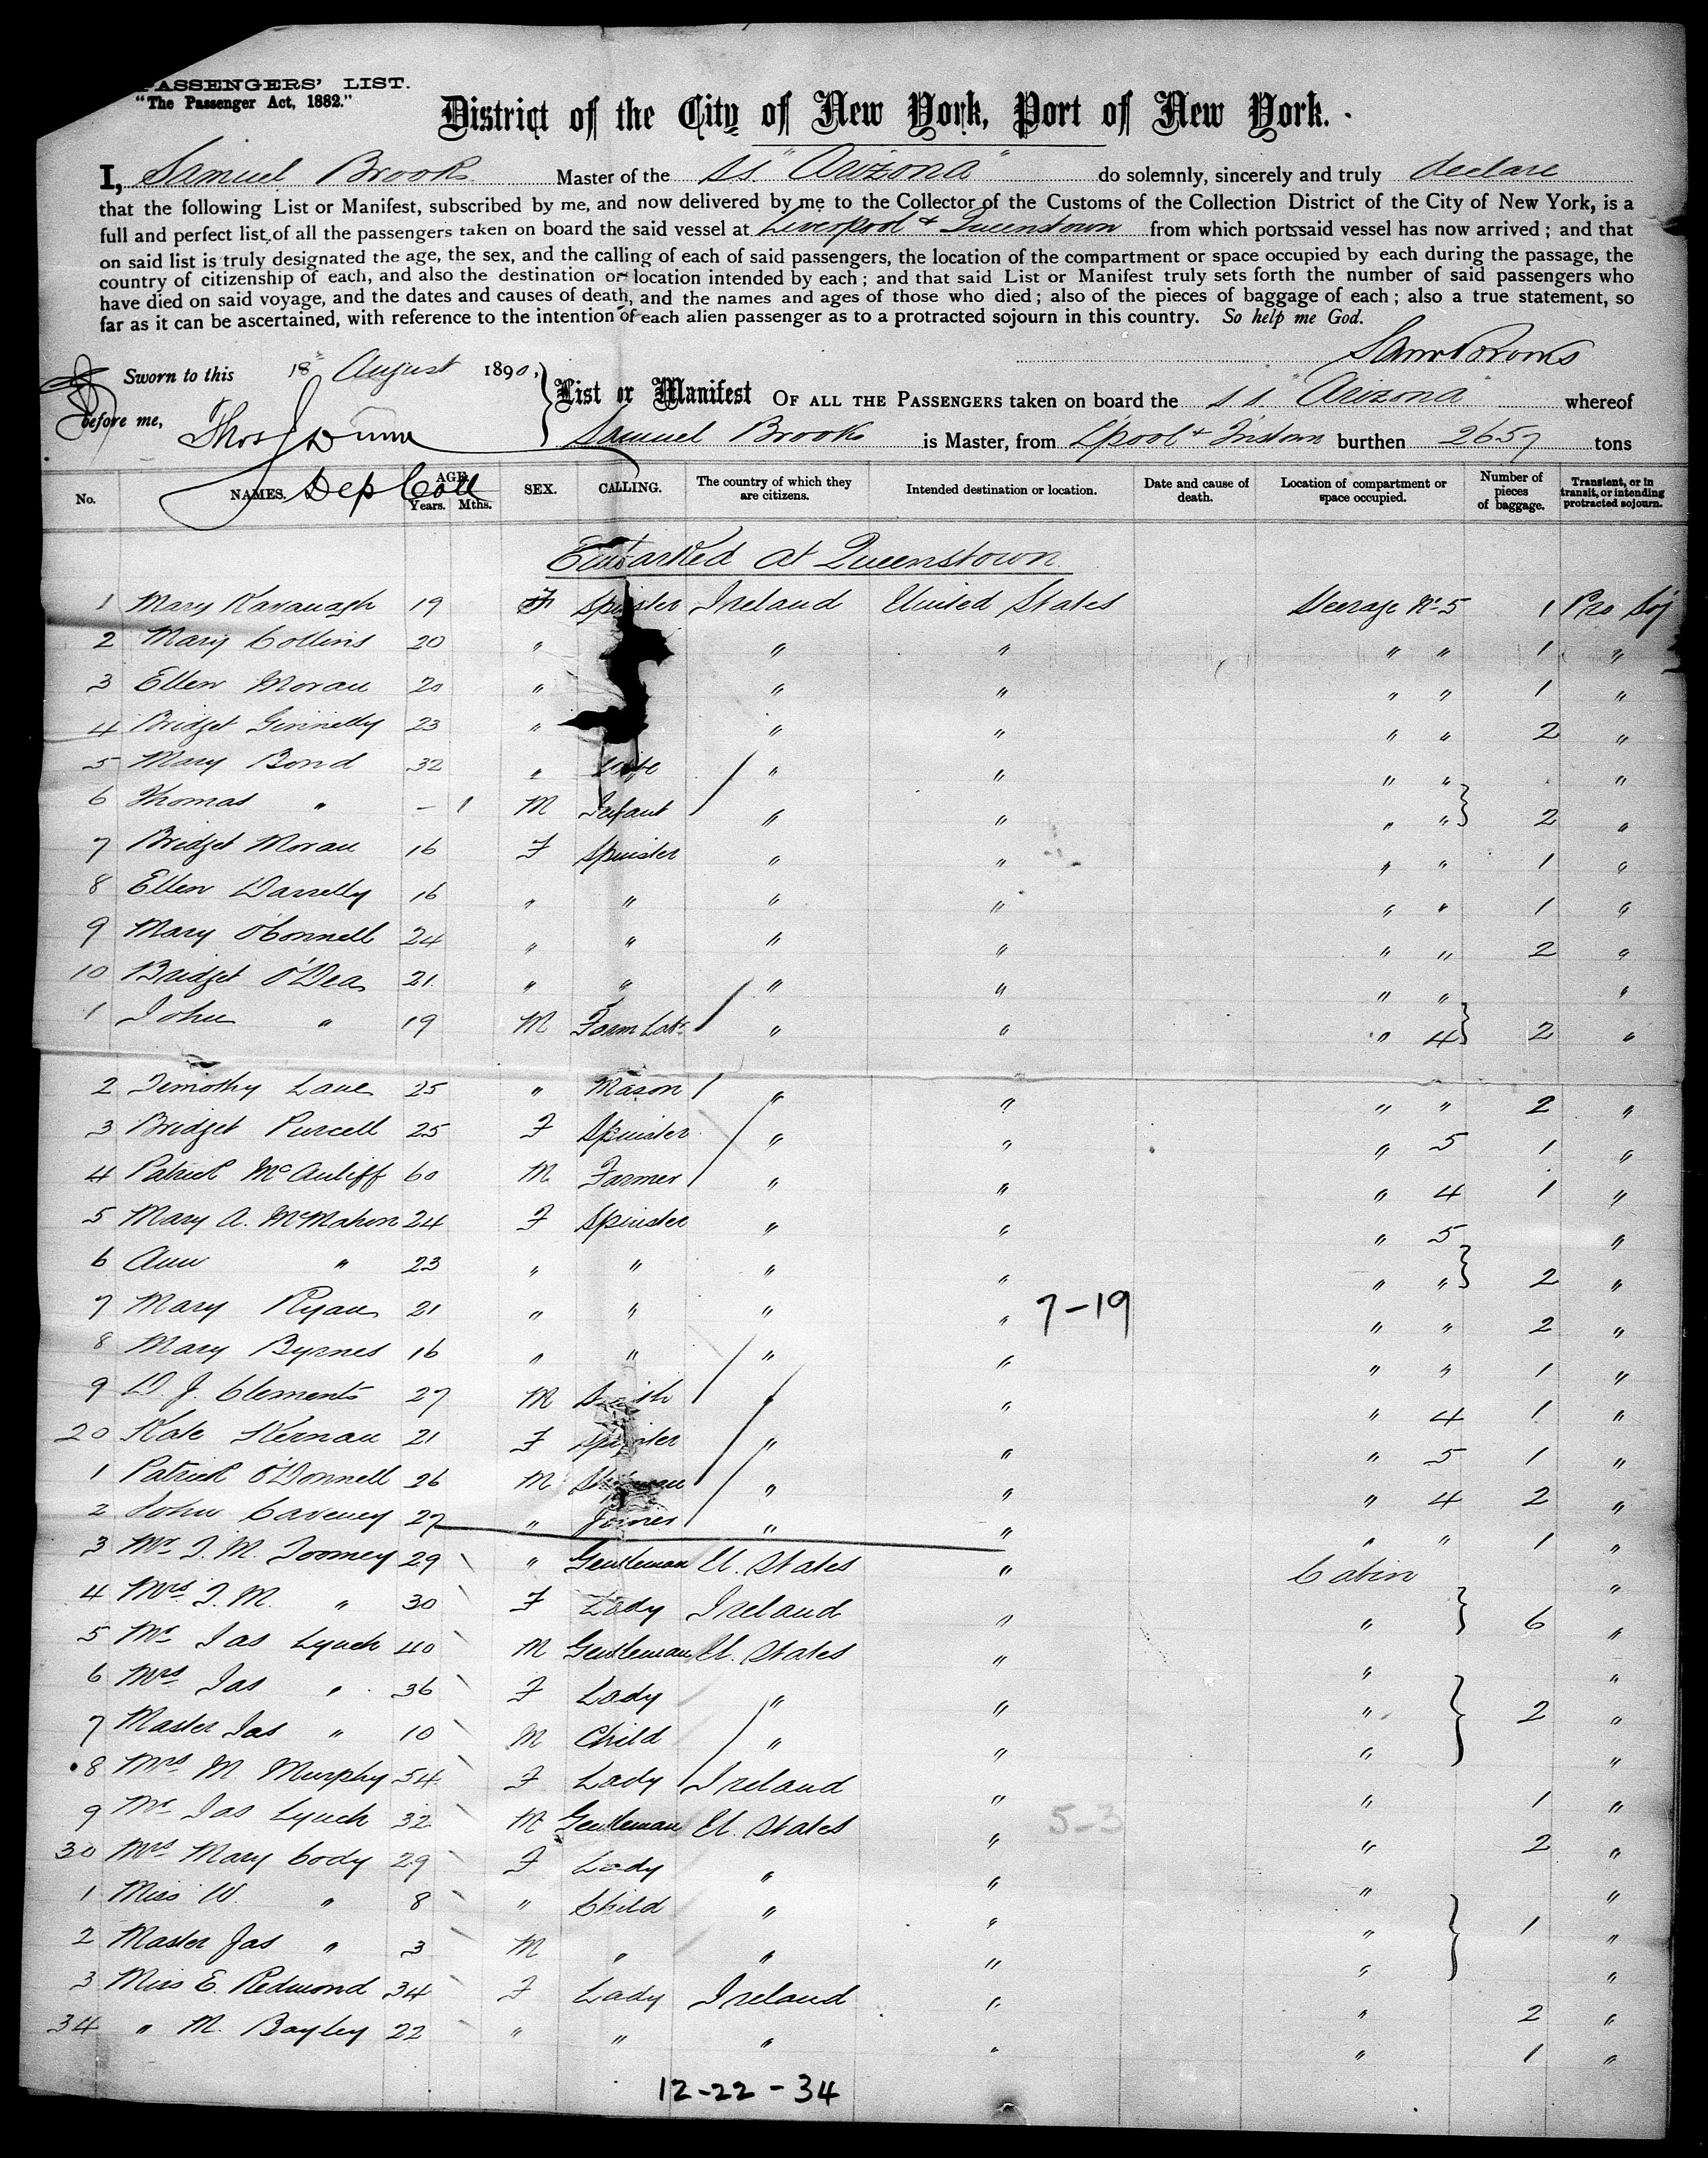 PASSENGERS' LIST.
"The Passenger Act, 1882."
District of the City of New York, Port of New York.
I, Samuel Brooks Master of the SS "Arizona" do solemnly, sincerely and truly declare
that the following List or Manifest, subscribed by me, and now delivered by me to the Collector of the Customs of the Collection District of the City of New York, is a
full and perfect list of all the passengers taken on board the said vessel at Liverpool & Queenstown from which port said vessel has now arrived; and that
on said list is truly designated the age, the sex, and the calling of each of said passengers, the location of the compartment or space occupied by each during the passage, the
country of citizenship of each, and also the destination or location intended by each; and that said List or Manifest truly sets forth the number of said passengers who
have died on said voyage, and the dates and causes of death, and the names and ages of those who died; also of the pieces of baggage of each; also a true statement, so
far as it can be ascertained, with reference to the intention of each alien passenger as to a protracted sojourn in this country. So help me God.
Saml Brooks
Sworn to this 18th August 1890,
before me, Thos J Dunn
Dep Coll
List or Manifest OF ALL THE PASSENGERS taken on board the ss "Arizona" whereof
Samuel Brooks is Master, from Lpool & Qnstown burthen 2657 tons
No. NAMES. AGE. Years. Mths. SEX. CALLING. The country of which they are citizens. Intended destination or location. Date and cause of death. Location of compartment or space occupied. Number of pieces of baggage. Transient, or in transit, or intending protracted sojourn.
Embarked at Queenstown
1 Mary Kavanagh 19 F Spinster Ireland United States Steerage No 5 1 Pro Soj
2 Mary Collins 20 " " " " " 1 "
3 Ellen Moran 20 " " " " " 1 "
4 Bridget Ginnelly 23 " " " " " 2 "
5 Mary Bond 32 " Wife " " " " "
6 Thomas " - 1 M Infant " " " " 2 "
7 Bridget Moran 16 F Spinster " " " " 1 "
8 Ellen Darrelly 16 " " " " " " 1 "
9 Mary O'Connell 24 " " " " " " 2 "
10 Bridget O'Dea 21 " " " " " " "
1 John " 19 M Farm Labr " " " 4 2 "
2 Timothy Lane 25 " Mason " " " " 2 "
3 Bridget Purcell 25 F Spinster " " " 5 1 "
4 Patrick McAuliff 60 M Farmer " " " 4 1 "
5 Mary A. McMahon 24 F Spinster " " " 5 "
6 Ann " 23 " " " " " " 2 "
7 Mary Ryan 21 " " " " 7-19 " " 2 "
8 Mary Byrnes 16 " " " " " " 1 "
9 D J. Clements 27 M Smith " " " 4 1 "
20 Kate Kernan 21 F Spinster " " " 5 1 "
1 Patrick O'Donnell 26 M " " " 4 2 "
2 John Caveney 27 " Joiner " " " " 1 "
3 Mr T. M. Toomey 29 " Gentleman U. States " Cabin "
4 Mrs T. M. " 30 F Lady Ireland " " 6 "
5 Mr Jas Lynch 40 M Gentleman U. States " " "
6 Mrs Jas " 36 F Lady " " " 2 "
7 Master Jas " 10 M Child " " " "
8 Mrs M Murphy 54 F Lady Ireland " " 1 "
9 Mr Jas Lynch 32 M Gentleman U. States " 5-3 " 2 "
30 Mrs Mary Cody 29 F Lady " " " "
1 Miss W. " 8 " Child " " " 1 "
2 Master Jas " 3 M " " " " "
3 Miss E. Redmond 34 F Lady Ireland " " 2 "
34 " M. Bayley 22 " " " " " 1 "
12-22-34